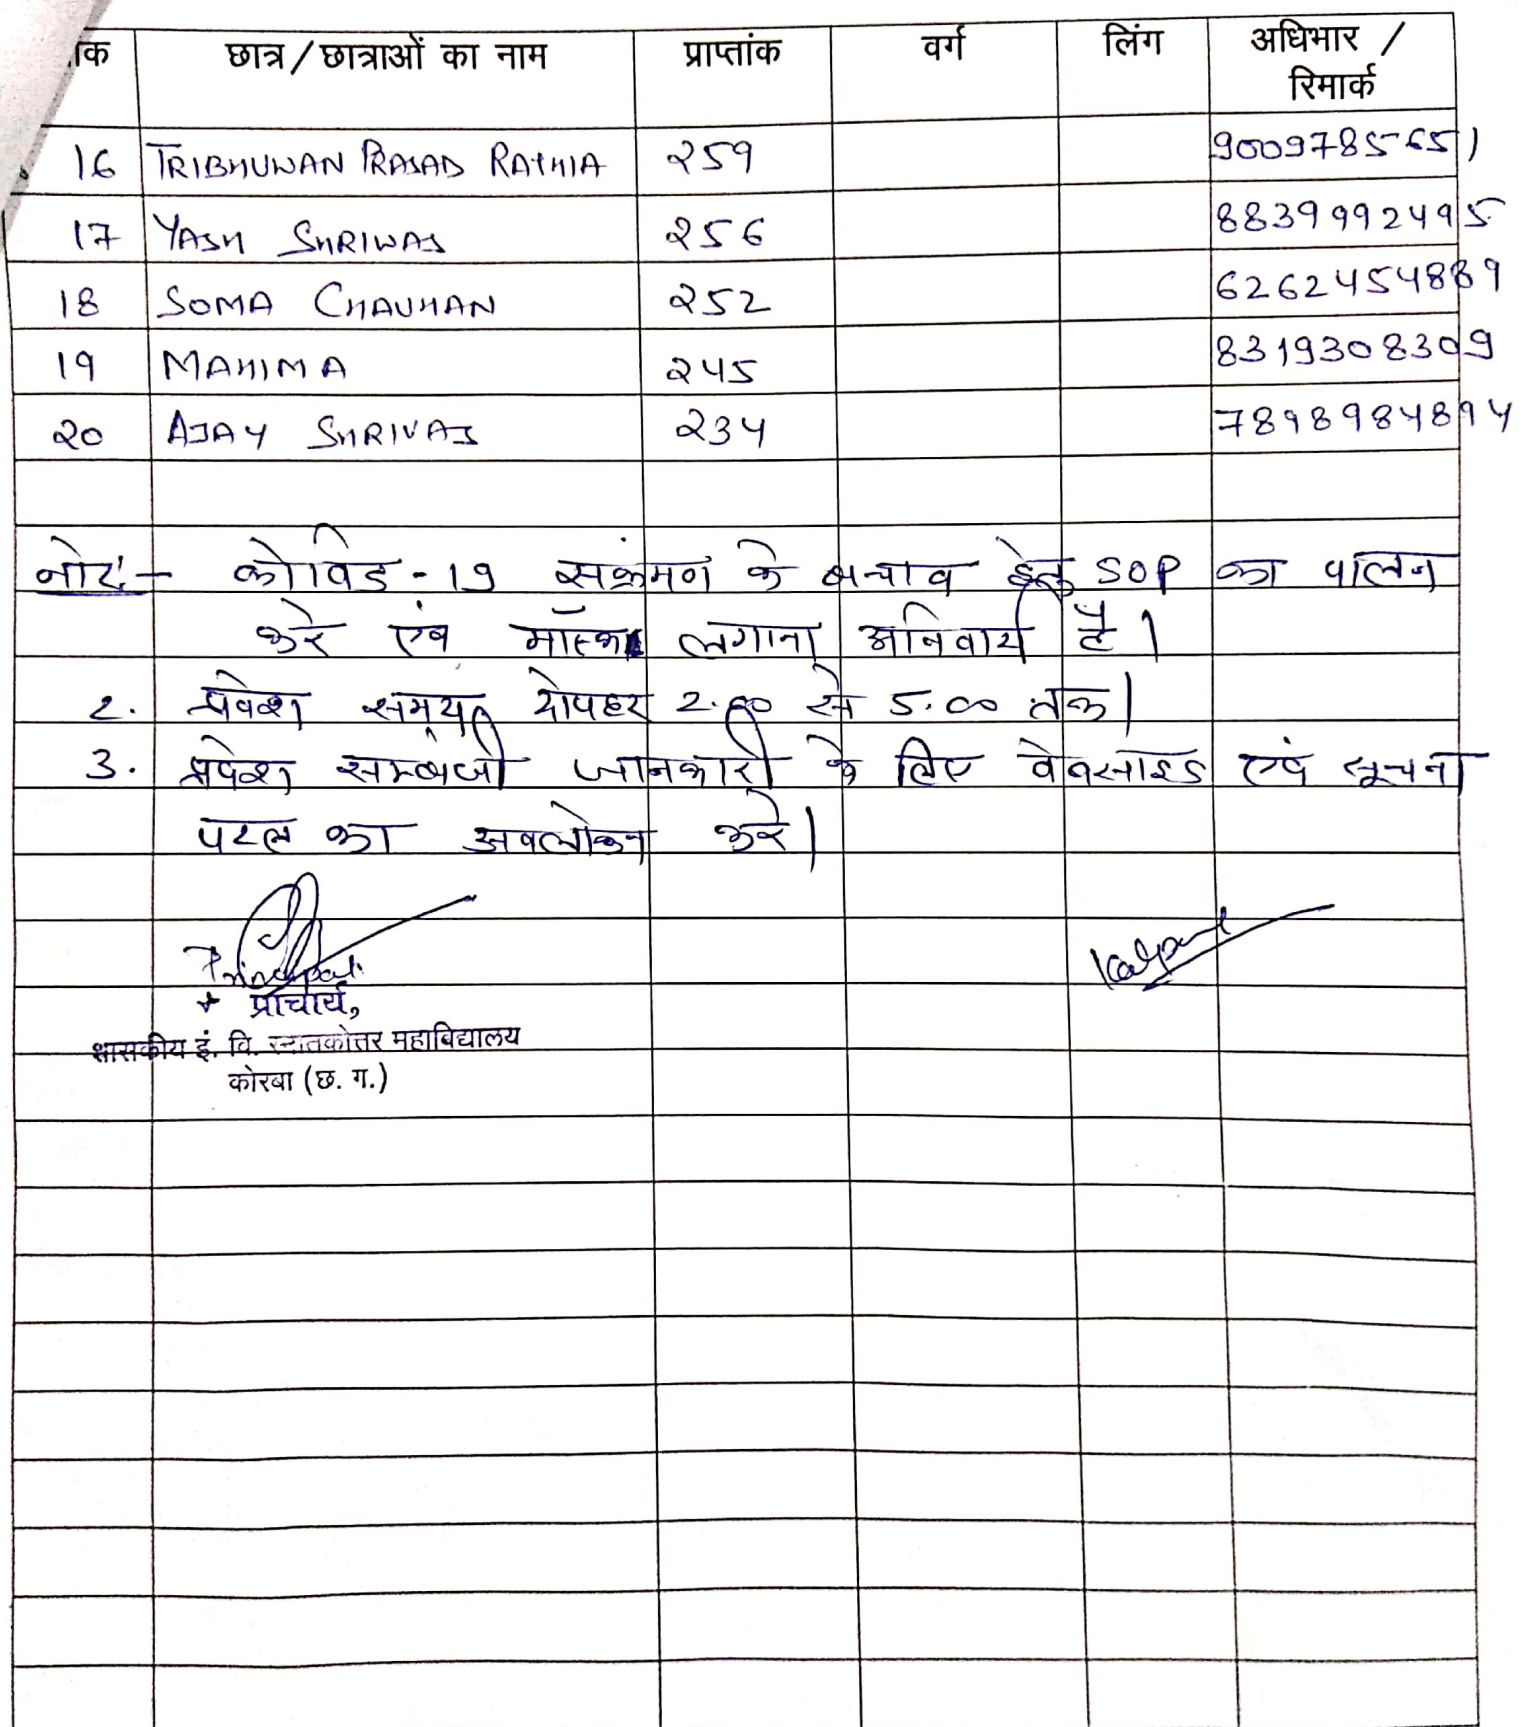 छात्र/छात्राओं का नाम प्राप्तांक वर्ग लिंग अधिभार /
रिमार्क
16 TRIBHUWAN PRASAD RATHIA 259 9009785651
17 YASH SHRIWAS 256 8839992495
18 SOMA CHAUHAN 252 6262454889
19 MAHIMA 245 8319308309
20 AJAY SHRIVAS 234 7898984894
नोट:- कोविड-19 सक्रंमण के बचाव हेतु SOP का पालन
करे एंव मॉस्क लगाना अनिवार्य है।
2. प्रवेश समय दोपहर 2.00 से 5.00 तक।
3. प्रवेश सम्बंधी जानकारी के लिए वेबसाइड एवं सूचना
पटल का अवलोकन करे।
Principal
प्राचार्य,
शासकीय इं. वि. स्नातकोत्तर महाविद्यालय
कोरबा (छ. ग.)